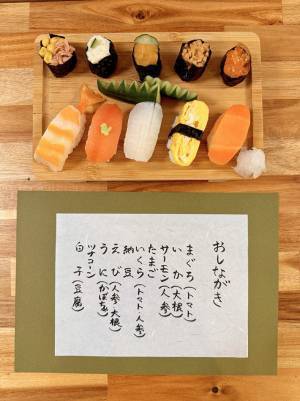 おしながき
まぐろ(トマト)
いか(大根)
サーモン(人参)
たまご
いくら(トマト 人参)
納豆
えび(人参 大根)
うに(かぼちゃ)
ツナコーン
白子(豆腐)